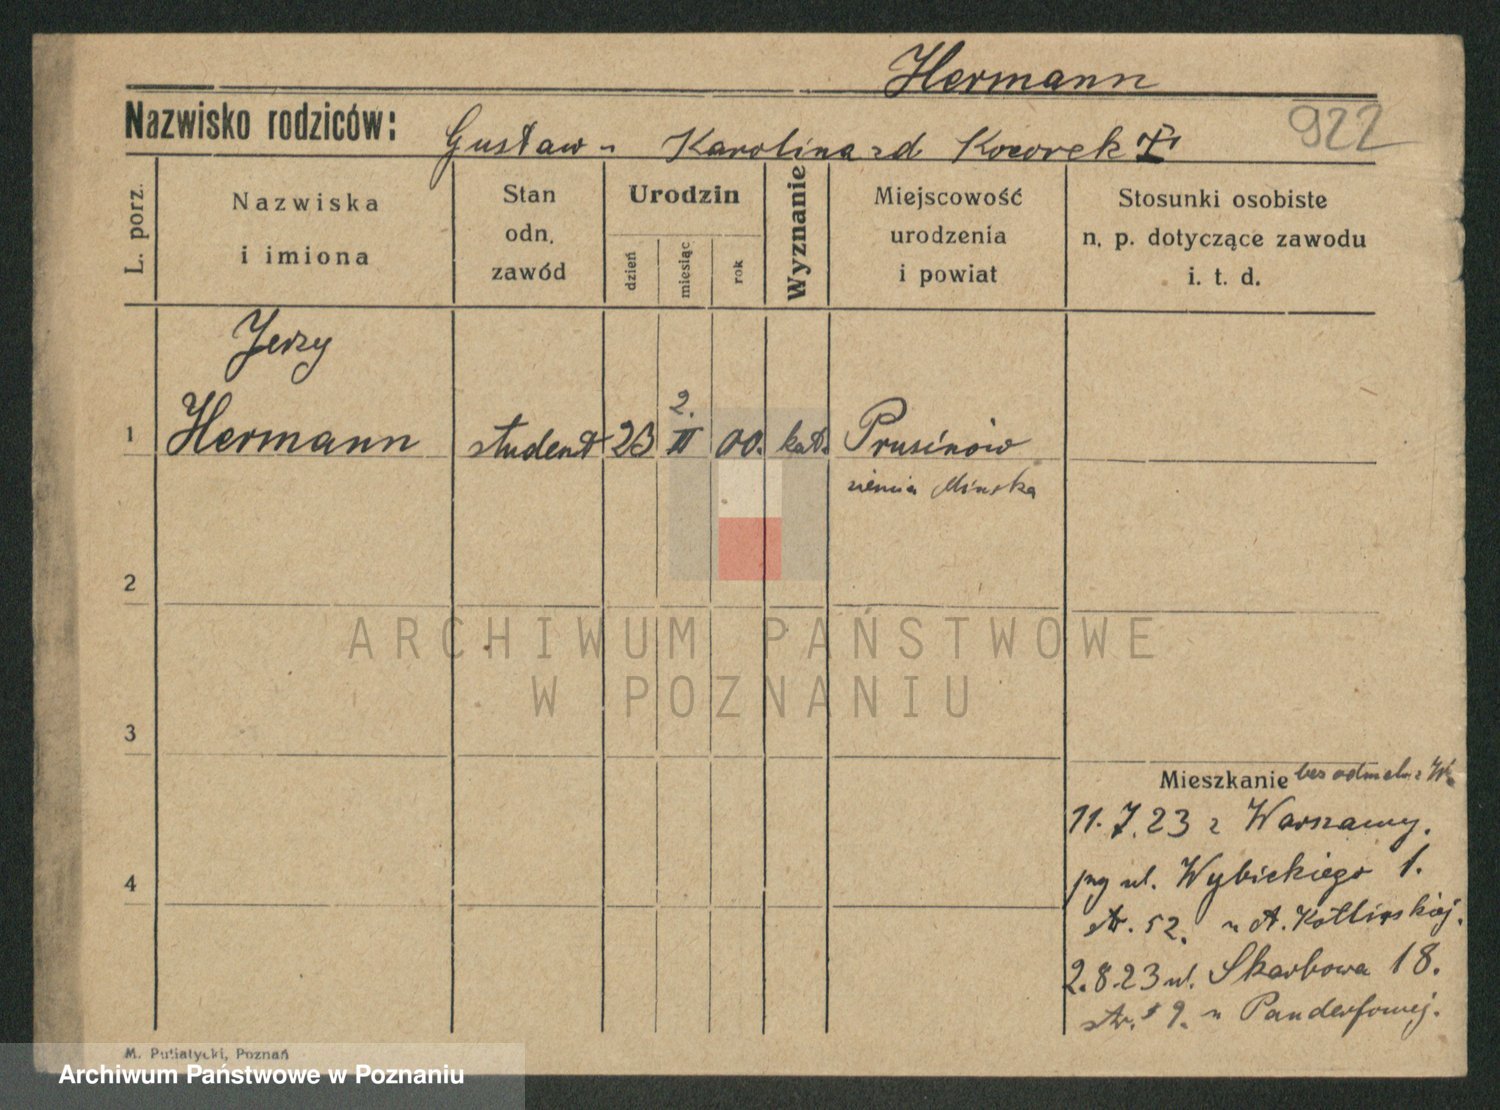 Hermann
Nazwisko rodziców:
922
Gustaw Karolina zd Kocorek
L. porz.
Nazwiska
i imiona
Stan
odn.
zawód
Urodzin
dzień
miesiąc
rok
Wyznanie
Miejscowość
urodzenia
i powiat
Stosunki osobiste
n. p. dotyczące zawodu
i. t. d.
Jerzy
2.
1 Hermann student 23 II 00. kat. Prusinów
ziemia Mińska
2
ARCHIWUM PAŃSTWOWE
W POZNANIU
3
Mieszkanie bez
11.7.23 z Warszawy.
ul. Wybickiego 1.
str. 52. u A.
2.8.23 ul. Skarbowa 18.
4
str. 9. u Panderfowej.
M. Putiatycki, Poznań
Archiwum Państwowe w Poznaniu